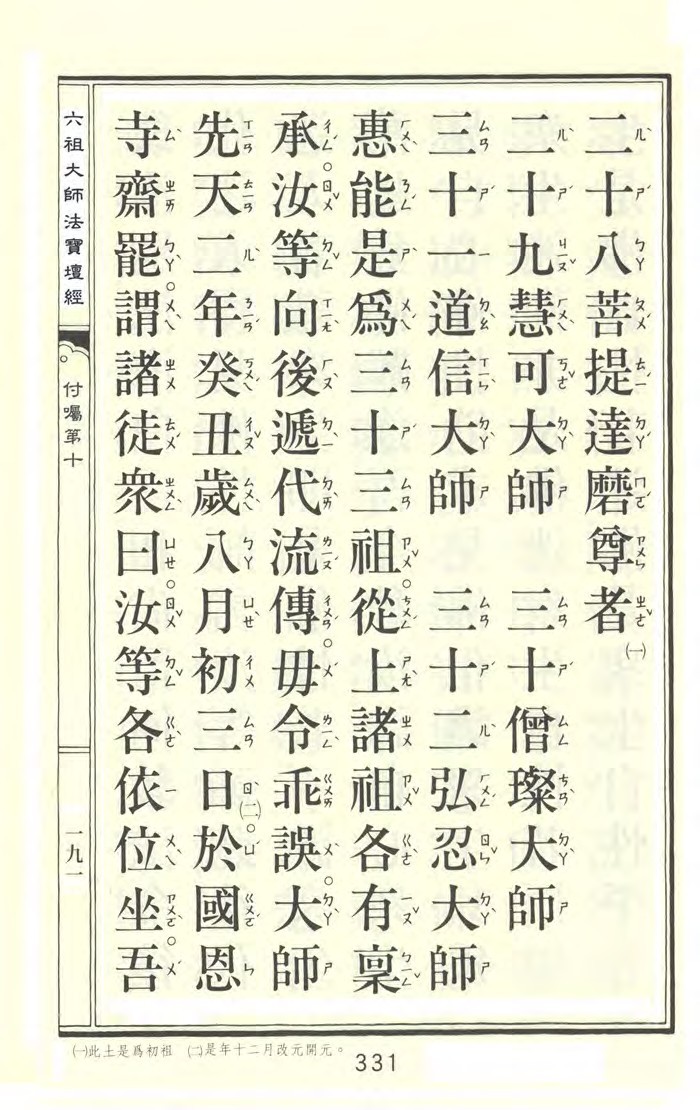 二十八菩提達磨尊者㈠
二十九慧可大師　三十僧璨大師
三十一道信大師　三十二弘忍大師
惠能是爲三十三祖。從上諸祖各有稟
承。汝等向後遞代流傳。毋令乖誤。大師
先天二年癸丑歲八月初三日㈡。於國恩
寺齋罷。謂諸徒衆曰。汝等各依位坐。吾
六祖大師法寶壇經
付囑第十
一九一
㈠此土是爲初祖　㈡是年十二月改元開元。
331